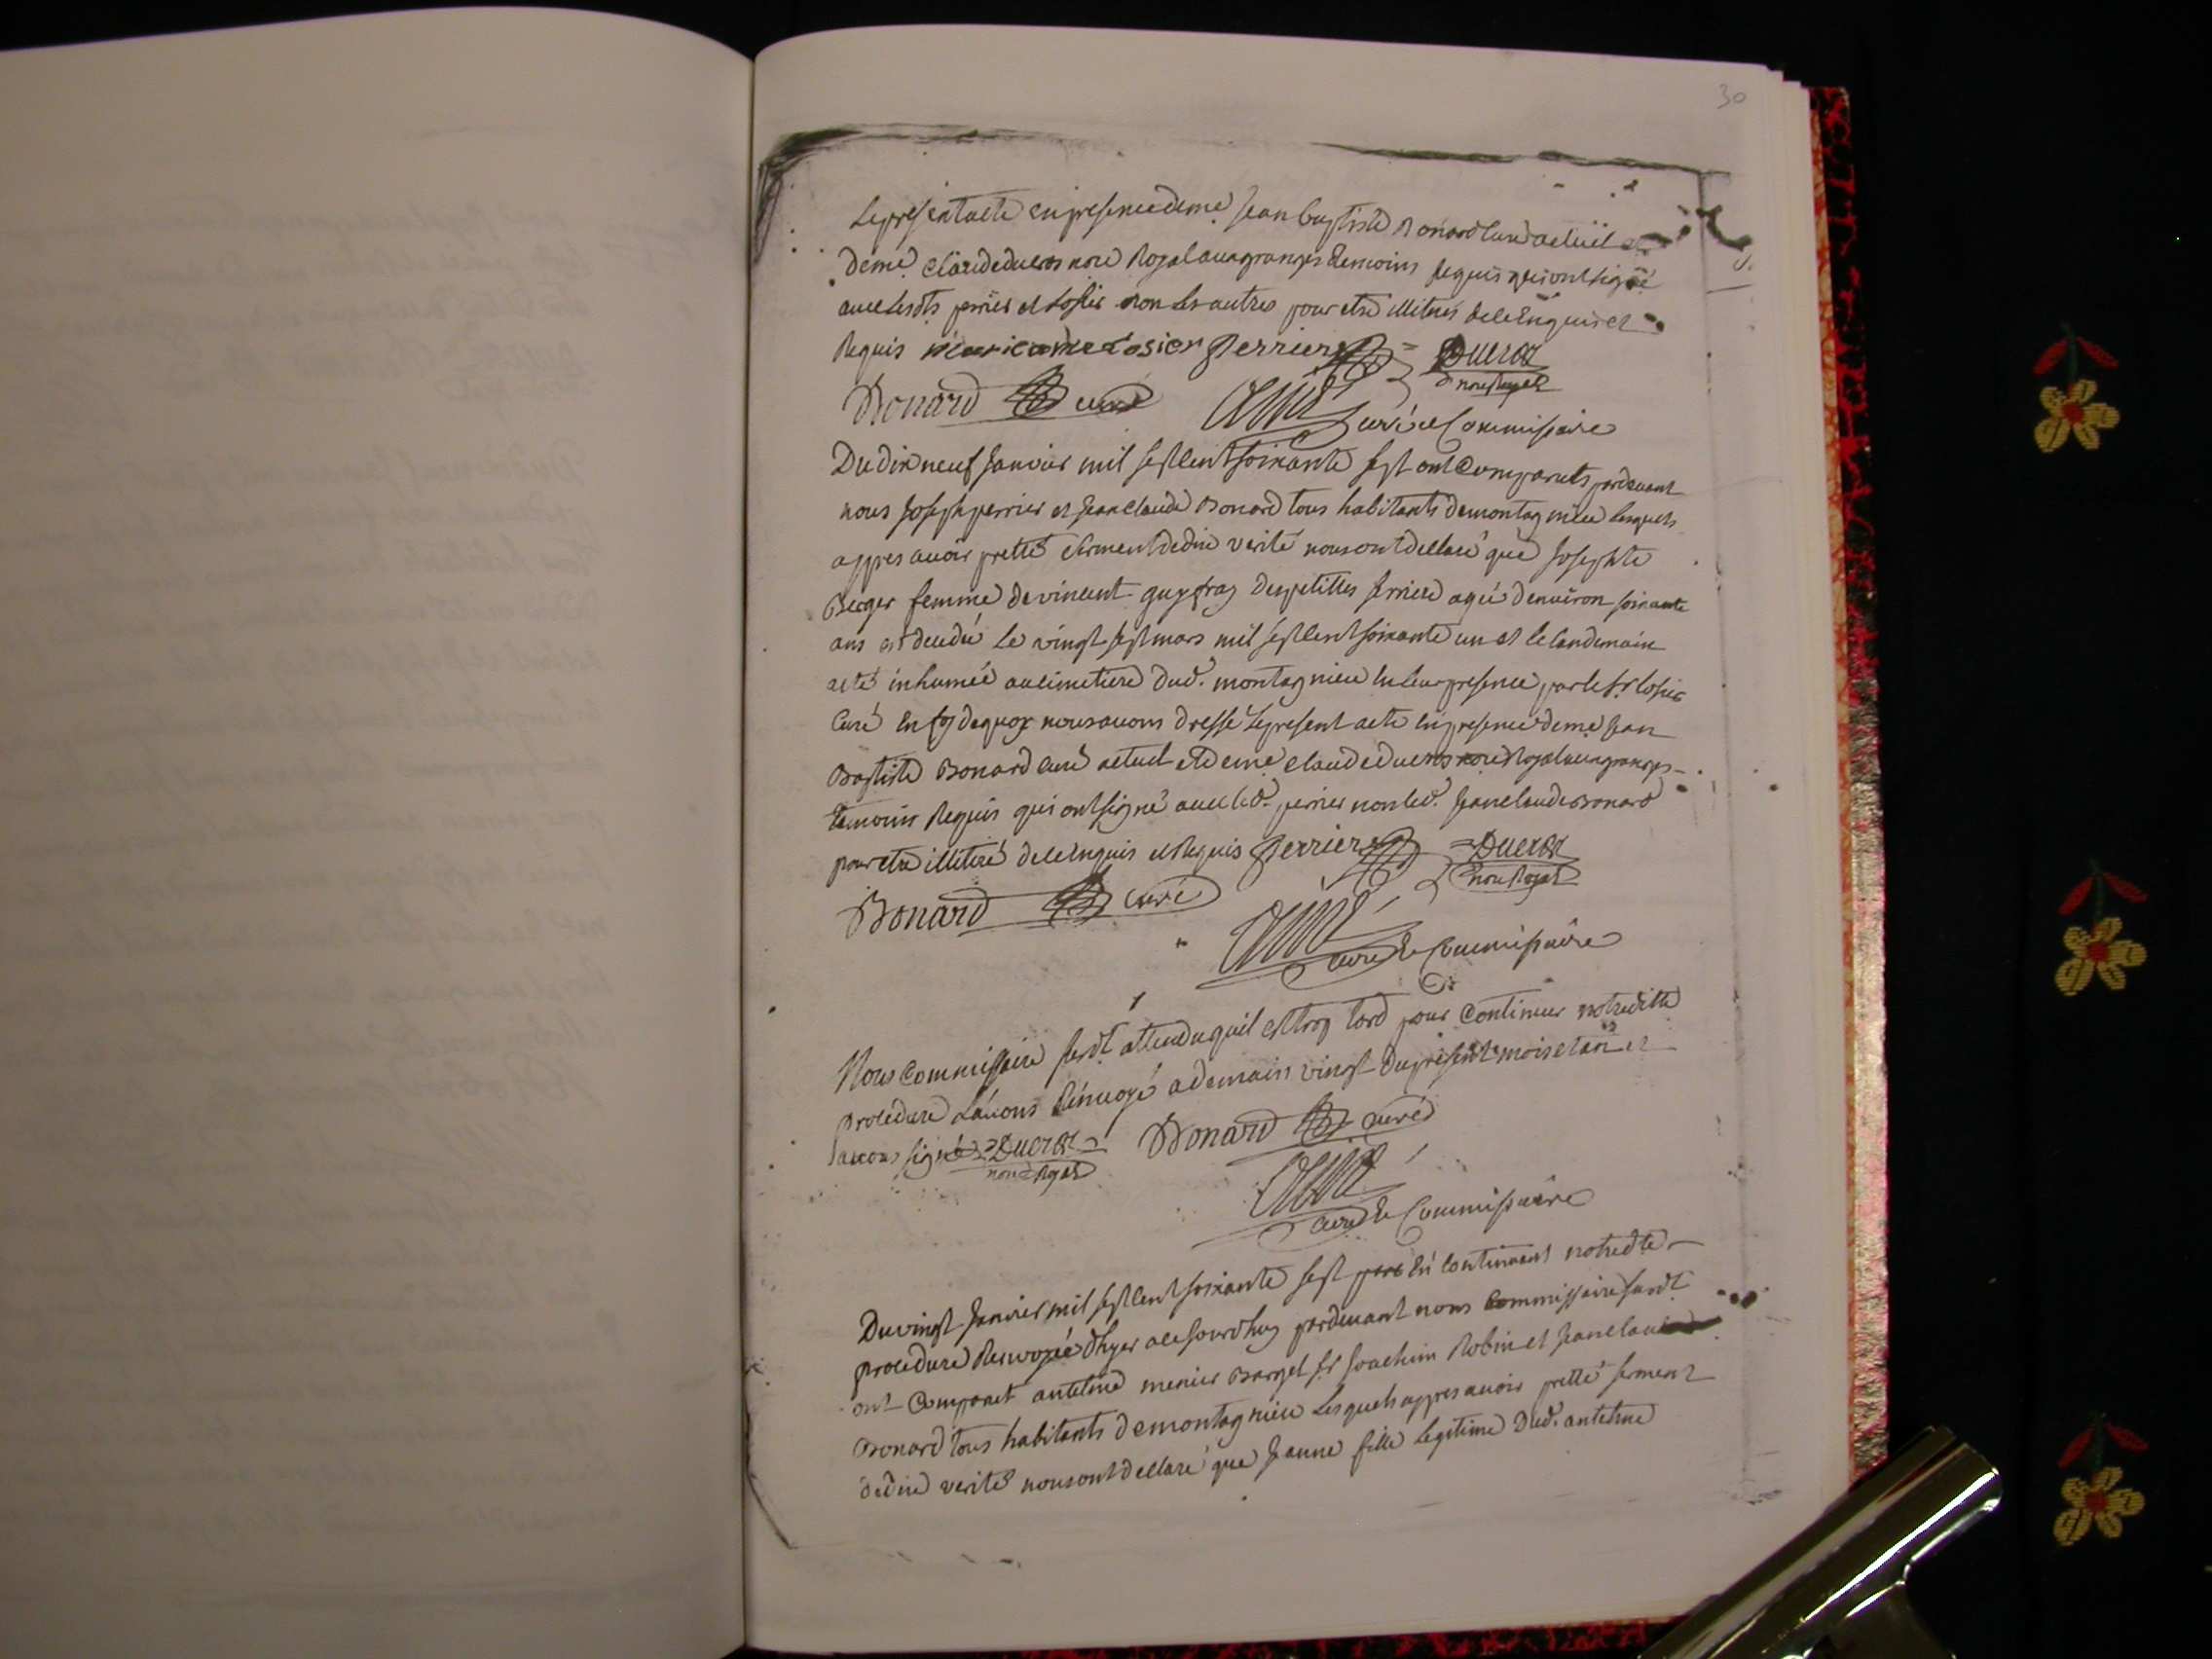 30
Le present acte en presence de me Jean baptiste Bonard curé actuel et
de me claude ducros nore Royal aux granges temoins requis qui ont signé
avec lesdts perrier et losier non les autres pour etre illiterés de ce enquis et
Requis losier Perrier Ducros
nore Royal
Bonard curé
curé et Commissaire
Du dix neuf janvier mil sept cent soixante sept ont comparuts pardevant
nous Joseph perrier et jean claude Bonard tous habitants de montagnieu lesquels
appres avoir pretté serment de dire verité nous ont dellaré que josephte
Berger femme de vincent guyfray des petittes serriere agée denviron soixante
ans est deudée le vingt sept mars mil sept cent soixante un et le landemain
a eté inhumée au cimetiere dud. montagnieu en leur presence par le sr losier
Curé En foy de quoy nous avons dressé le present acte en presence de me jean
Baptiste Bonard curé actuel et de me claude ducros nore Royal aux granges
temoins Requis qui ont signé avec led. perrier non led. jean claude Bonard
pour etre illiteré de ce enquis et Requis Perrier Ducros
nore Royal
Bonard curé
curé et Commissaire
Nous Commissaire susdt attendu quil est trop tard pour continuer notreditte
procedure Lavons Renvoyé a demain vingt du present mois et an et
avons signé Ducros Bonard curé
nore Royal
curé et Commissaire
Du vingt janvier mil sept cent soixante sept En continuant notredte
procedure Renvoyée dhyer a ce jourdhuy pardevant nous commissaire susdt
ont Comparet antelme menier Bargel sr joachim Robin et jean claude
Bonard tous habitants de montagnieu Lesquels appres avoir pretté serment
de dire verité nous ont dellaré que jeanne fille legitime dud. antelme